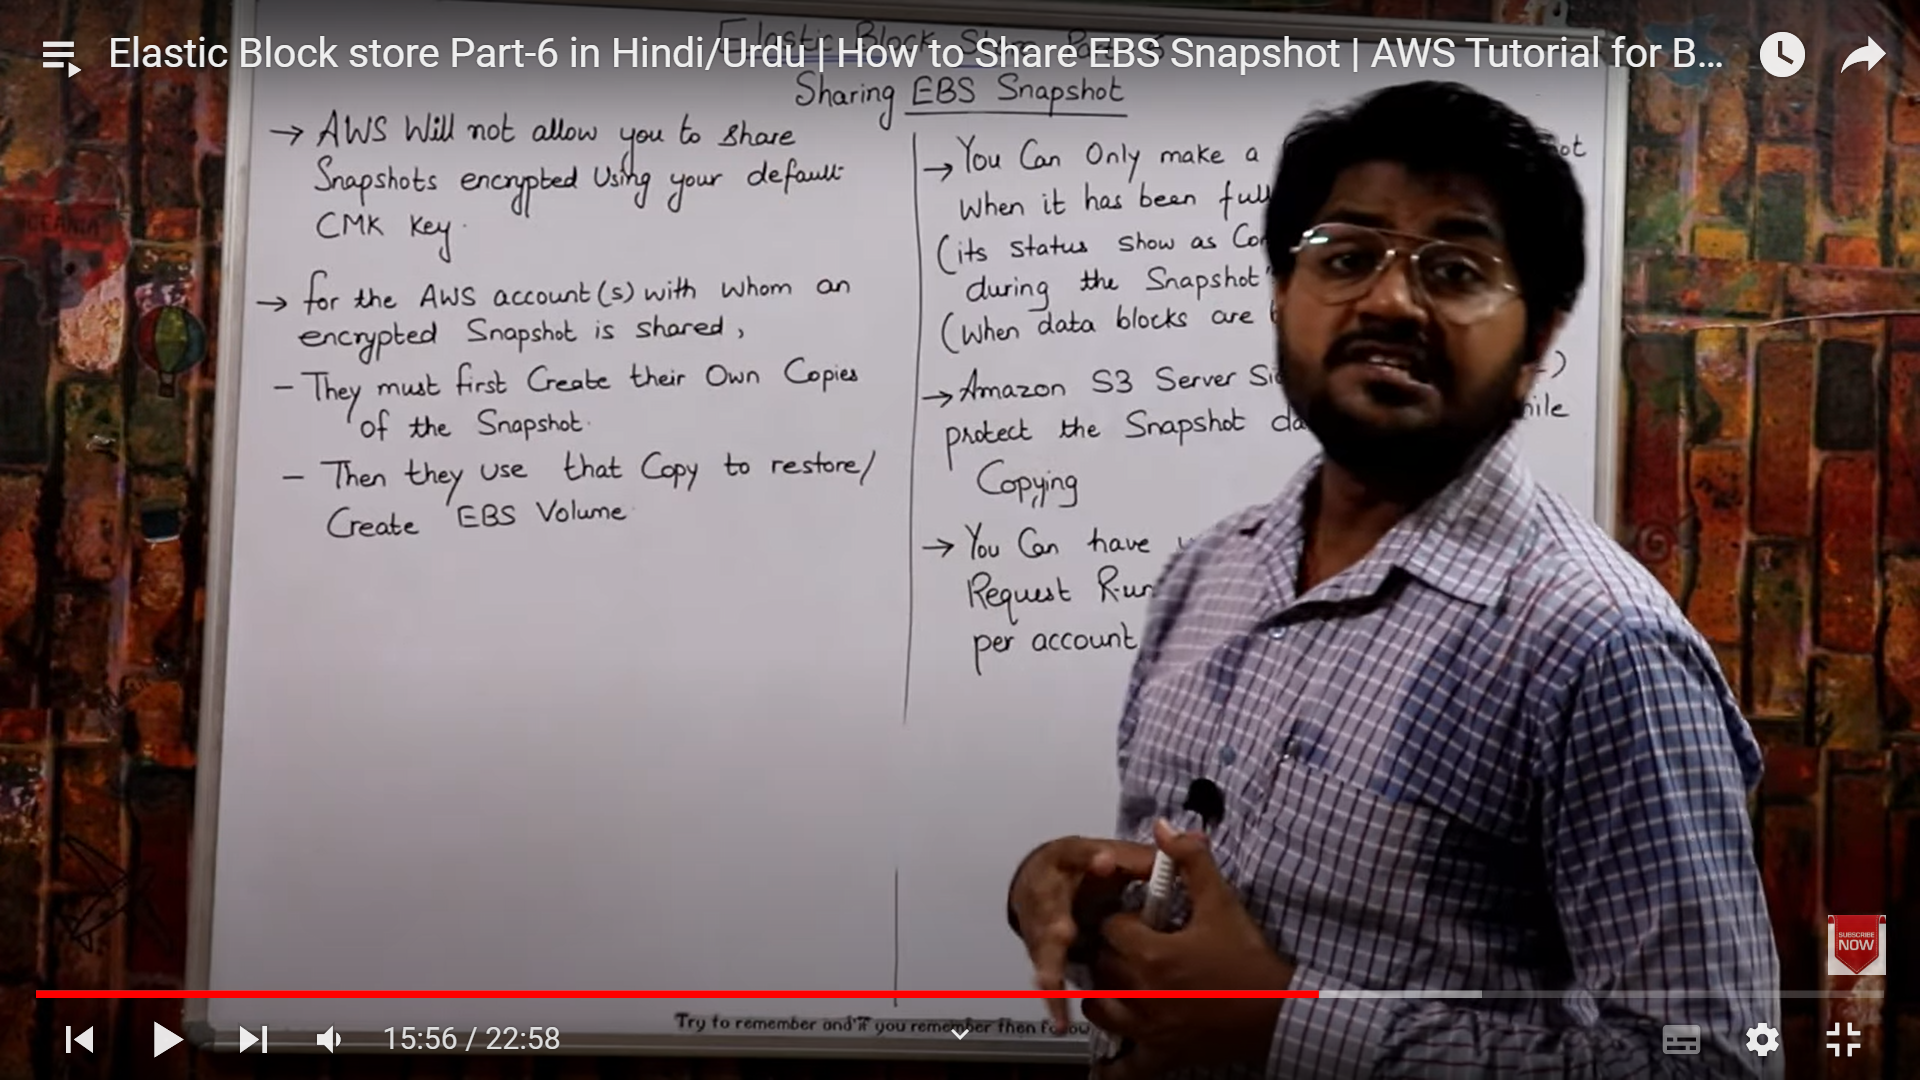 Elastic Block store Part-6 in Hindi/Urdu | How to Share EBS Snapshot | AWS Tutorial for B...
Elastic Block
Sharing EBS Snapshot
→ AWS Will not allow you to share
Snapshots encrypted Using your default
CMK key.
→ for the AWS account(s) with whom an
encrypted Snapshot is shared,
- They must first Create their Own Copies
of the Snapshot.
- Then they use that Copy to restore/
Create EBS Volume
→ You Can Only make a
When it has been
(its status show as
during the Snapshot"
(when data blocks are
→ Amazon S3 Server
protect the Snapshot
Copying
→ You Can have
Request
per account
Try to remember and if you remember then
SUBSCRIBE
NOW
15:56 / 22:58